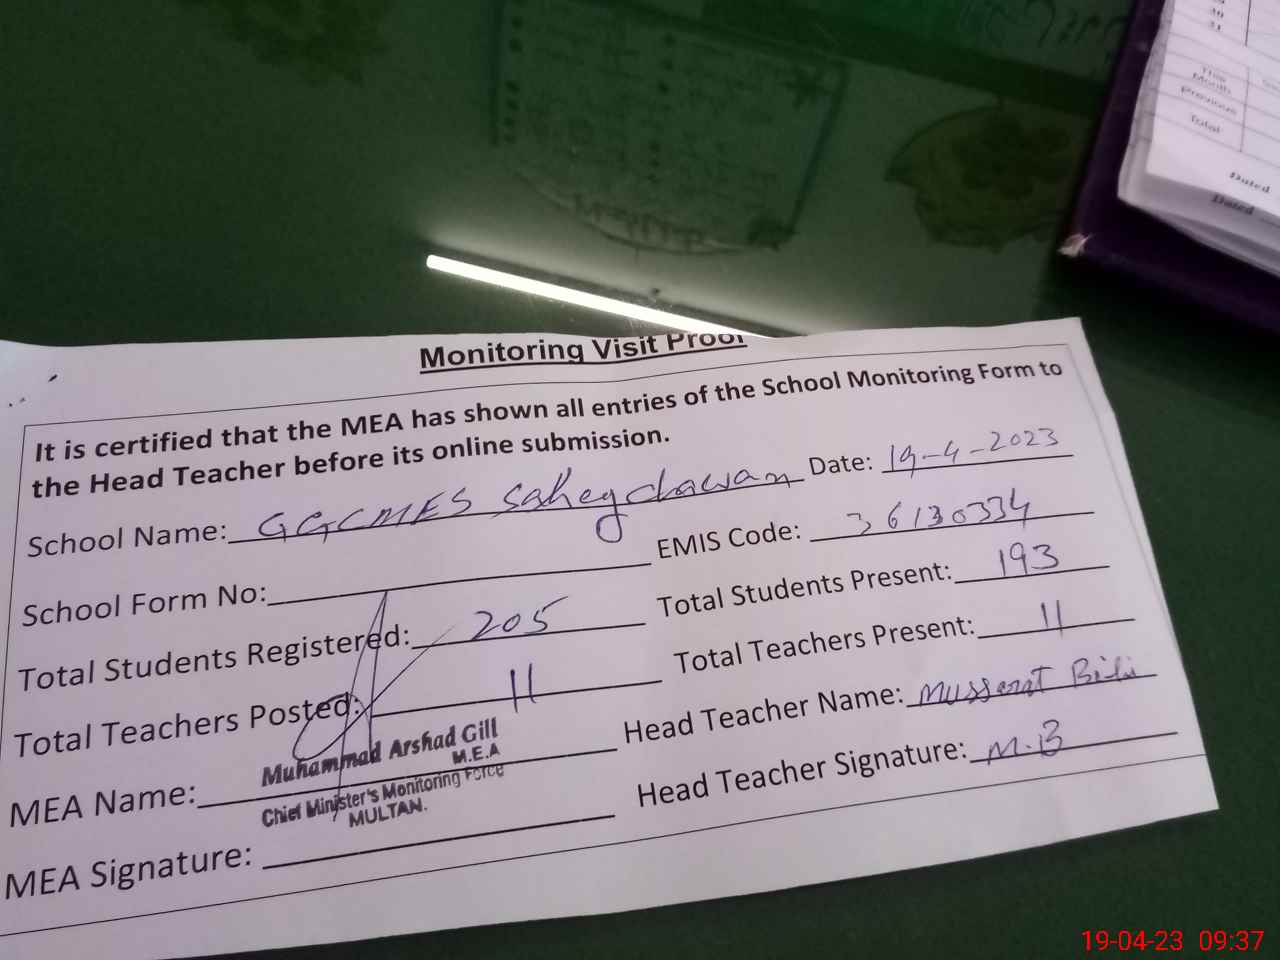 Monitoring Visit Proof
It is certified that the MEA has shown all entries of the School Monitoring Form to
the Head Teacher before its online submission.
School Name: GGCMES Saheychawan Date: 19-4-2023
School Form No: EMIS Code: 36130334
Total Students Registered: 205 Total Students Present: 193
Total Teachers Posted: 11 Total Teachers Present: 11
MEA Name: Muhammad Arshad Gill Head Teacher Name: Mussarat Bibi
M.E.A
Chief Minister's Monitoring Force
MULTAN.
MEA Signature: Head Teacher Signature: M.B
30
31
This
Month
Previous
Total
Dated
Dated
19-04-23 09:37